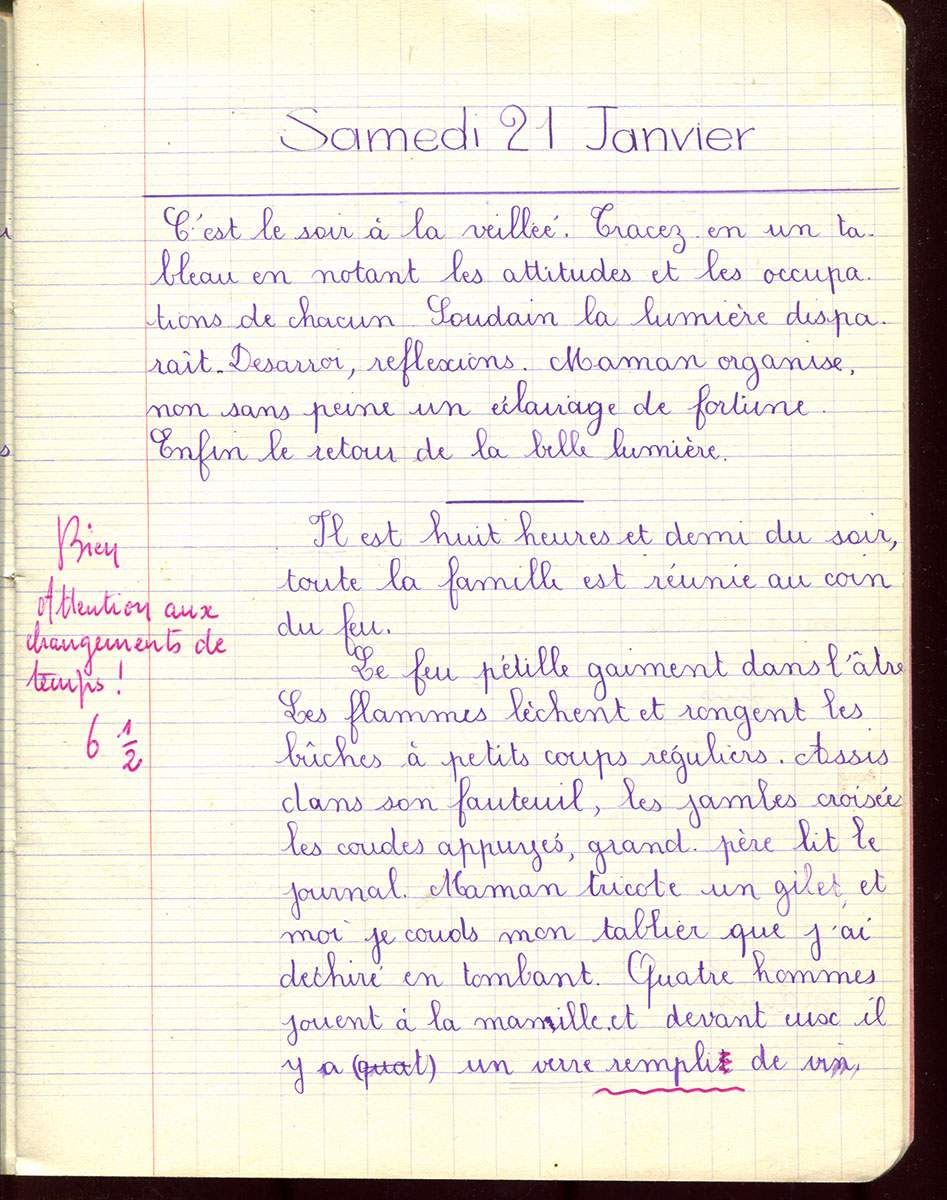 Samedi 21 Janvier
C'est le soir à la veilleé. Tracez en un ta-
bleau en notant les attitudes et les occupa-
tions de chacun Soudain la lumière dispa-
rait. Desarroi, reflexions. Maman organise,
non sans peine un éclairage de fortune.
Enfin le retour de la belle lumière.
Il est huit heures et demi du soir,
toute la famille est réunie au coin
du feu.
Le feu pétille gaiment dans l'âtre
Les flammes lèchent et rongent les
bûches à petits coups réguliers. Assis
dans son fauteuil, les jambes croisées
les coudes appuyés, grand-père lit le
journal. Maman tricote un gilet, et
moi je couds mon tablier que j'ai
dechiré en tombant. Quatre hommes
jouent à la manille, et devant eux il
y a (quat) un verre remplit de vin,
Bien
Attention aux
changements de
temps !
6 1/2